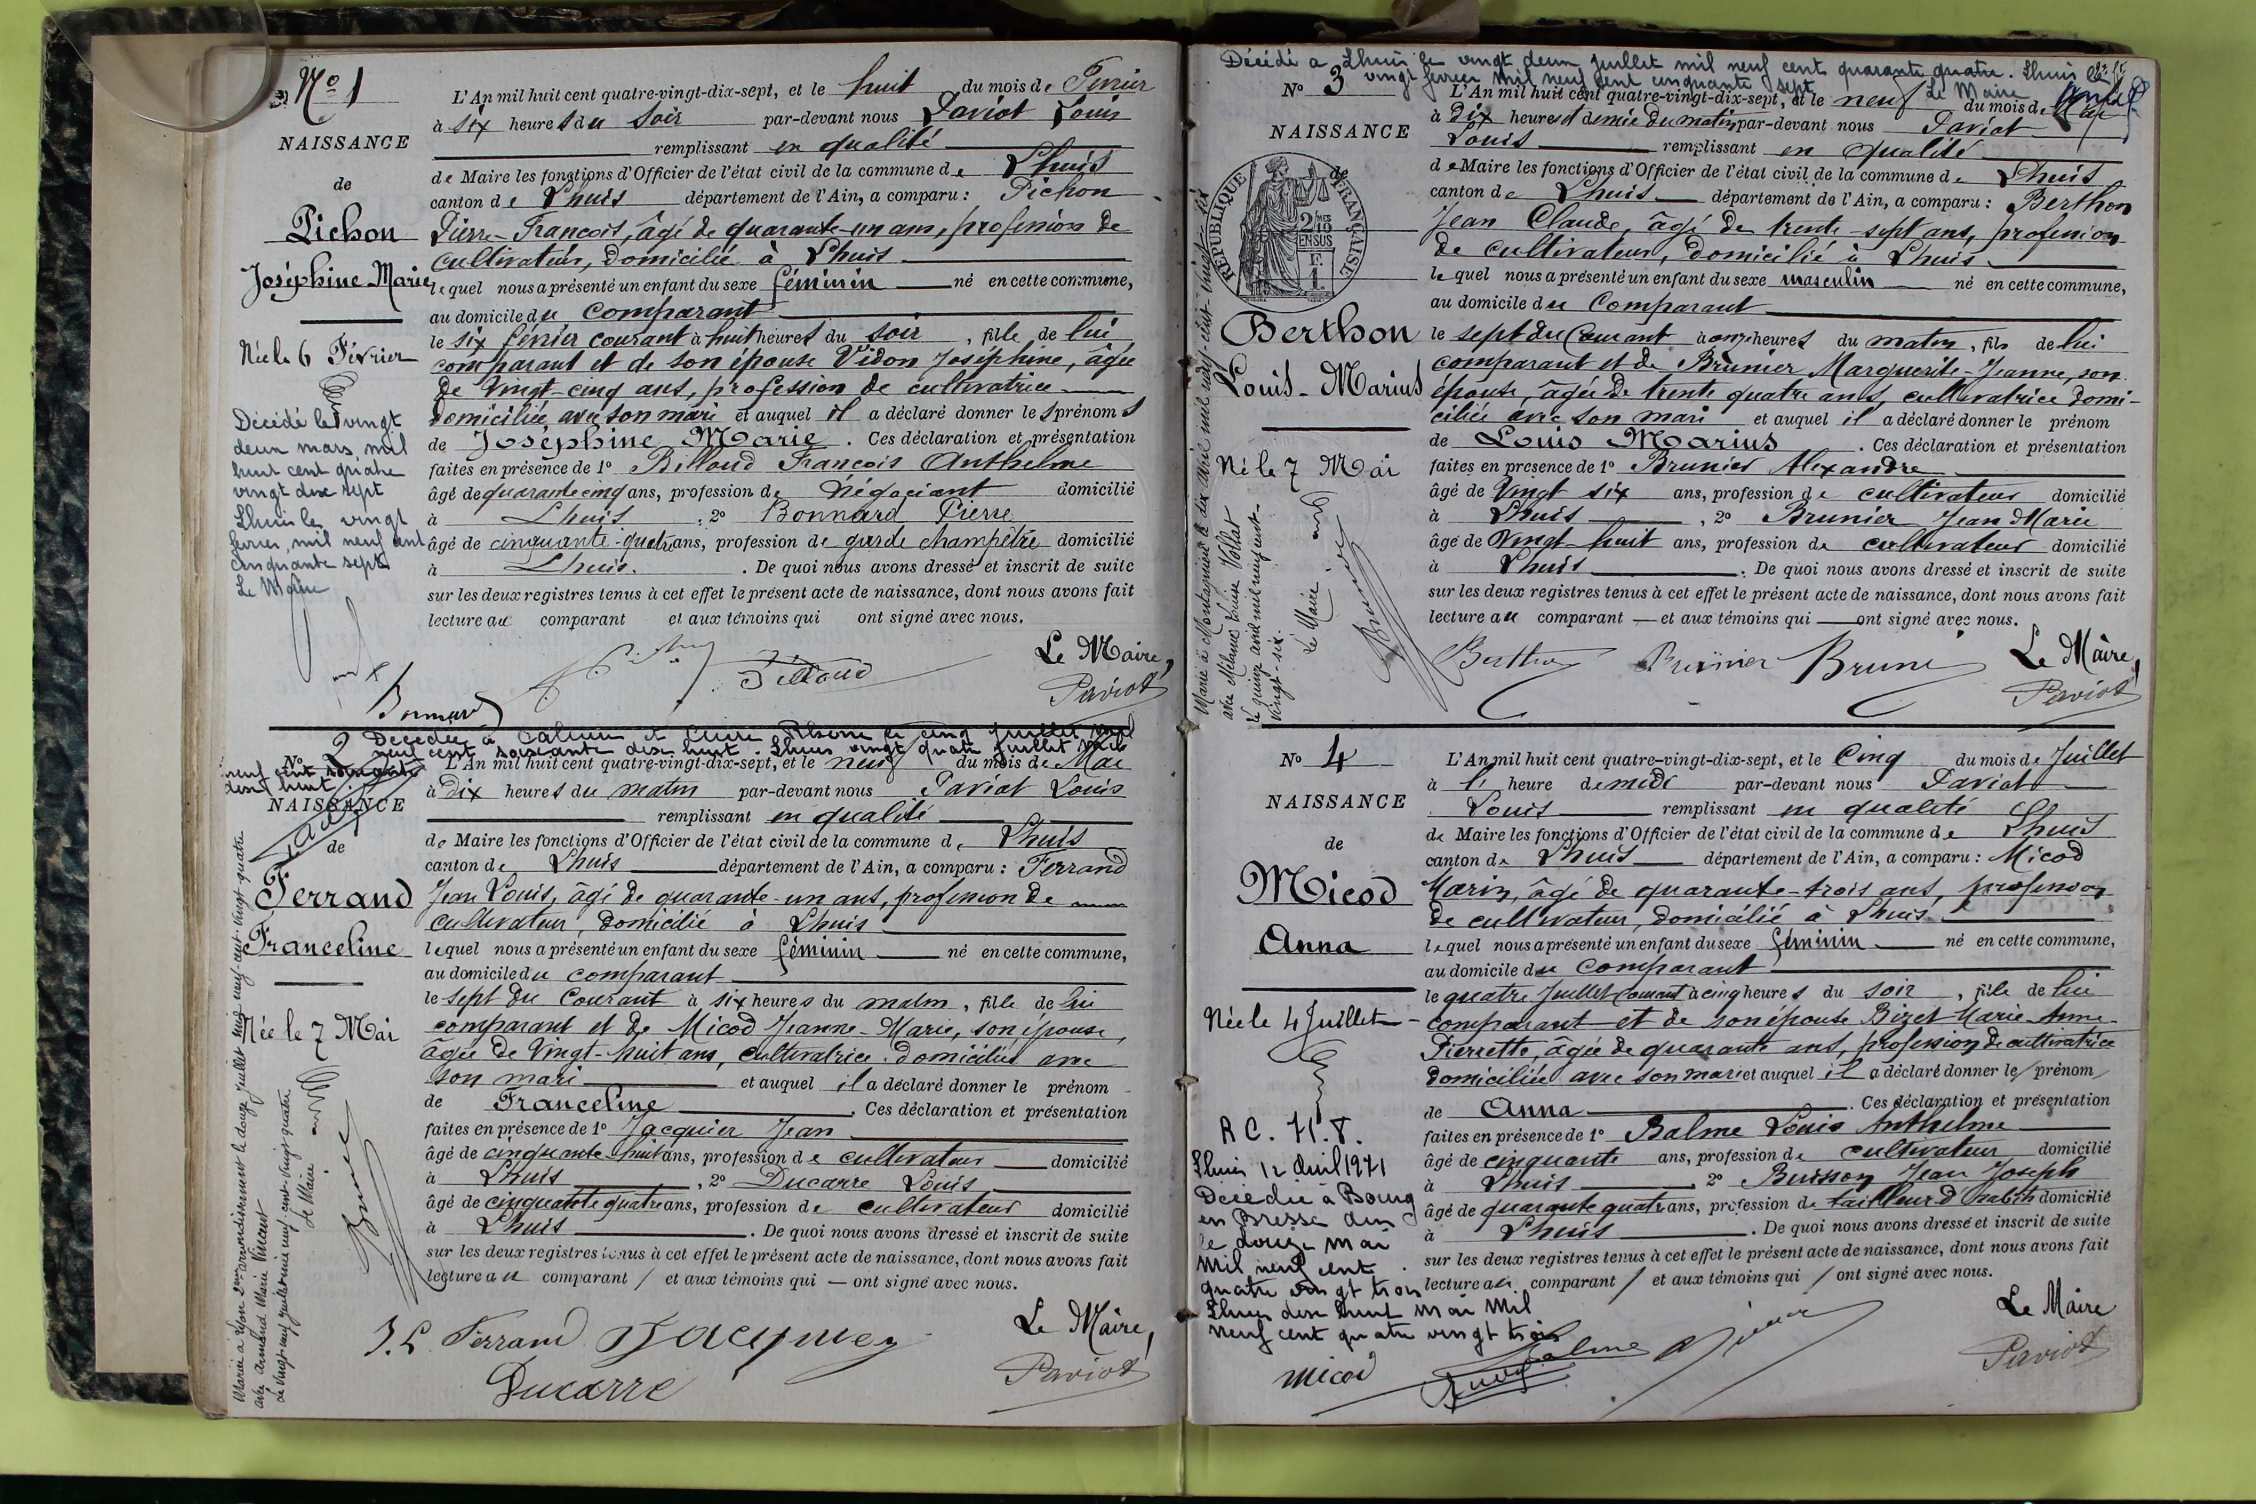 No 1
NAISSANCE
de
Pichon
Joséphine Marie
Née le 6 Février
Décédé le vingt
deux mars mil
huit cent quatre
vingt dix sept
Lhuis le vingt
février mil neuf cent
cinquante sept
Le Maire
L'An mil huit cent quatre-vingt-dix-sept, et le huit du mois de Février
à six heures du soir par-devant nous Paviot Louis
remplissant en qualité
de Maire les fonctions d'Officier de l'état civil de la commune de Lhuis
canton de Lhuis département de l'Ain, a comparu : Pichon
Pierre-François, âgé de quarante-un ans, profession de
cultivateur, domicilié à Lhuis
lequel nous a présenté un enfant du sexe féminin né en cette commune,
au domicile du comparant
le six février courant à huit heures du soir, fille de lui
comparant et de son épouse Vidon Joséphine, âgée
de vingt-cinq ans, profession de cultivatrice
domiciliée avec son mari et auquel il a déclaré donner les prénoms
de Joséphine Marie. Ces déclaration et présentation
faites en présence de 1° Billoud François Anthelme
âgé de quarante cinq ans, profession de négociant domicilié
à Lhuis, 2° Bonnard Pierre
âgé de cinquante-quatre ans, profession de garde champêtre domicilié
à Lhuis. De quoi nous avons dressé et inscrit de suite
sur les deux registres tenus à cet effet le présent acte de naissance, dont nous avons fait
lecture au comparant et aux témoins qui ont signé avec nous.
Le Maire,
Billoud
Paviot
Bonnard
Décédée à Caluire et Cuire Rhône le cinq juillet mil
neuf cent soixante dix huit. Lhuis vingt quatre juillet mil
neuf cent soixante
dix huit
No 2
NAISSANCE
de
Ferrand
Franceline
Née le 7 Mai
Mariée à Lyon 2me arrondissement le douze juillet mil neuf-cent-vingt-quatre
avec Armand Marie Vincent
Le vingt neuf juillet mil neuf cent-vingt-quatre
Le Maire
L'An mil huit cent quatre-vingt-dix-sept, et le neuf du mois de Mai
à dix heures du matin par-devant nous Paviot Louis
remplissant en qualité
de Maire les fonctions d'Officier de l'état civil de la commune de Lhuis
canton de Lhuis département de l'Ain, a comparu : Ferrand
Jean Louis, âgé de quarante-un ans, profession de
cultivateur, domicilié à Lhuis
lequel nous a présenté un enfant du sexe féminin né en cette commune,
au domicile du comparant
le sept du courant à six heures du matin, fille de lui
comparant et de Micod Jeanne-Marie, son épouse,
âgée de vingt-huit ans, cultivatrice domiciliée avec
son mari et auquel il a déclaré donner le prénom
de Franceline. Ces déclaration et présentation
faites en présence de 1° Jacquier Jean
âgé de cinquante-huit ans, profession de cultivateur domicilié
à Lhuis, 2° Ducarre Louis
âgé de cinquante quatre ans, profession de cultivateur domicilié
à Lhuis. De quoi nous avons dressé et inscrit de suite
sur les deux registres tenus à cet effet le présent acte de naissance, dont nous avons fait
lecture au comparant et aux témoins qui ont signé avec nous.
Le Maire,
J. L. Ferrand
Ducarre
Paviot
Décédé à Lhuis le vingt deux juillet mil neuf cent quarante quatre. Lhuis le
vingt février mil neuf cent cinquante sept
Le Maire
No 3
NAISSANCE
de
RÉPUBLIQUE FRANÇAISE
2/10 EN SUS
Berthon
Louis-Marius
Né le 7 Mai
Le Maire
L'An mil huit cent quatre-vingt-dix-sept, et le neuf du mois de Mai
à dix heures et demie du matin par-devant nous Paviot
Louis remplissant en qualité
de Maire les fonctions d'Officier de l'état civil de la commune de Lhuis
canton de Lhuis département de l'Ain, a comparu : Berthon
Jean Claude, âgé de trente-sept ans, profession
de cultivateur, domicilié à Lhuis
lequel nous a présenté un enfant du sexe masculin né en cette commune,
au domicile du comparant
le sept du courant à onze heures du matin, fils de lui
comparant et de Brunier Marguerite-Jeanne, son
épouse, âgée de trente quatre ans, cultivatrice domi-
ciliée avec son mari et auquel il a déclaré donner le prénom
de Louis Marius. Ces déclaration et présentation
faites en présence de 1° Brunier Alexandre
âgé de vingt six ans, profession de cultivateur domicilié
à Lhuis, 2° Brunier Jean Marie
âgé de vingt-huit ans, profession de cultivateur domicilié
à Lhuis. De quoi nous avons dressé et inscrit de suite
sur les deux registres tenus à cet effet le présent acte de naissance, dont nous avons fait
lecture au comparant et aux témoins qui ont signé avec nous.
Le Maire,
Berthon Brunier
Paviot
No 4
NAISSANCE
de
Micod
Anna
Née le 4 Juillet
Lhuis 12 Avril 1971
Décédée à Bourg
en Bresse Ain
le douze mai
mil neuf cent
quatre vingt trois
Lhuis dix huit mai mil
neuf cent quatre vingt trois
L'An mil huit cent quatre-vingt-dix-sept, et le cinq du mois de Juillet
à l' heure de midi par-devant nous Paviot
Louis remplissant en qualité
de Maire les fonctions d'Officier de l'état civil de la commune de Lhuis
canton de Lhuis département de l'Ain, a comparu : Micod
Marin, âgé de quarante-trois ans, profession
de cultivateur, domicilié à Lhuis
lequel nous a présenté un enfant du sexe féminin né en cette commune,
au domicile du comparant
le quatre Juillet courant à cinq heures du soir, fille de lui
comparant et de son épouse Bizet Marie-Anne-
Pierrette, âgée de quarante ans, profession de cultivatrice
domiciliée avec son mari et auquel il a déclaré donner le prénom
de Anna. Ces déclaration et présentation
faites en présence de 1° Balme Louis Anthelme
âgé de cinquante ans, profession de cultivateur domicilié
à Lhuis, 2° Buisson Jean Joseph
âgé de quarante quatre ans, profession de tailleur d'habits domicilié
à Lhuis. De quoi nous avons dressé et inscrit de suite
sur les deux registres tenus à cet effet le présent acte de naissance, dont nous avons fait
lecture au comparant et aux témoins qui ont signé avec nous.
Le Maire
Micod Balme
Paviot